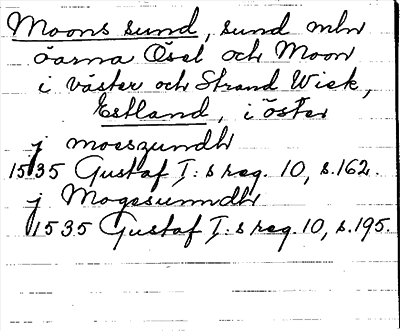 Moons sund, sund mln
öarna Ösel och Moon
i väster och Strand Wiek,
Estland, i öster
j moeszundh
1535 Gustaf I:s reg. 10, s.162.
j Mogesunndh
1535 Gustaf I:s reg. 10, s.195.